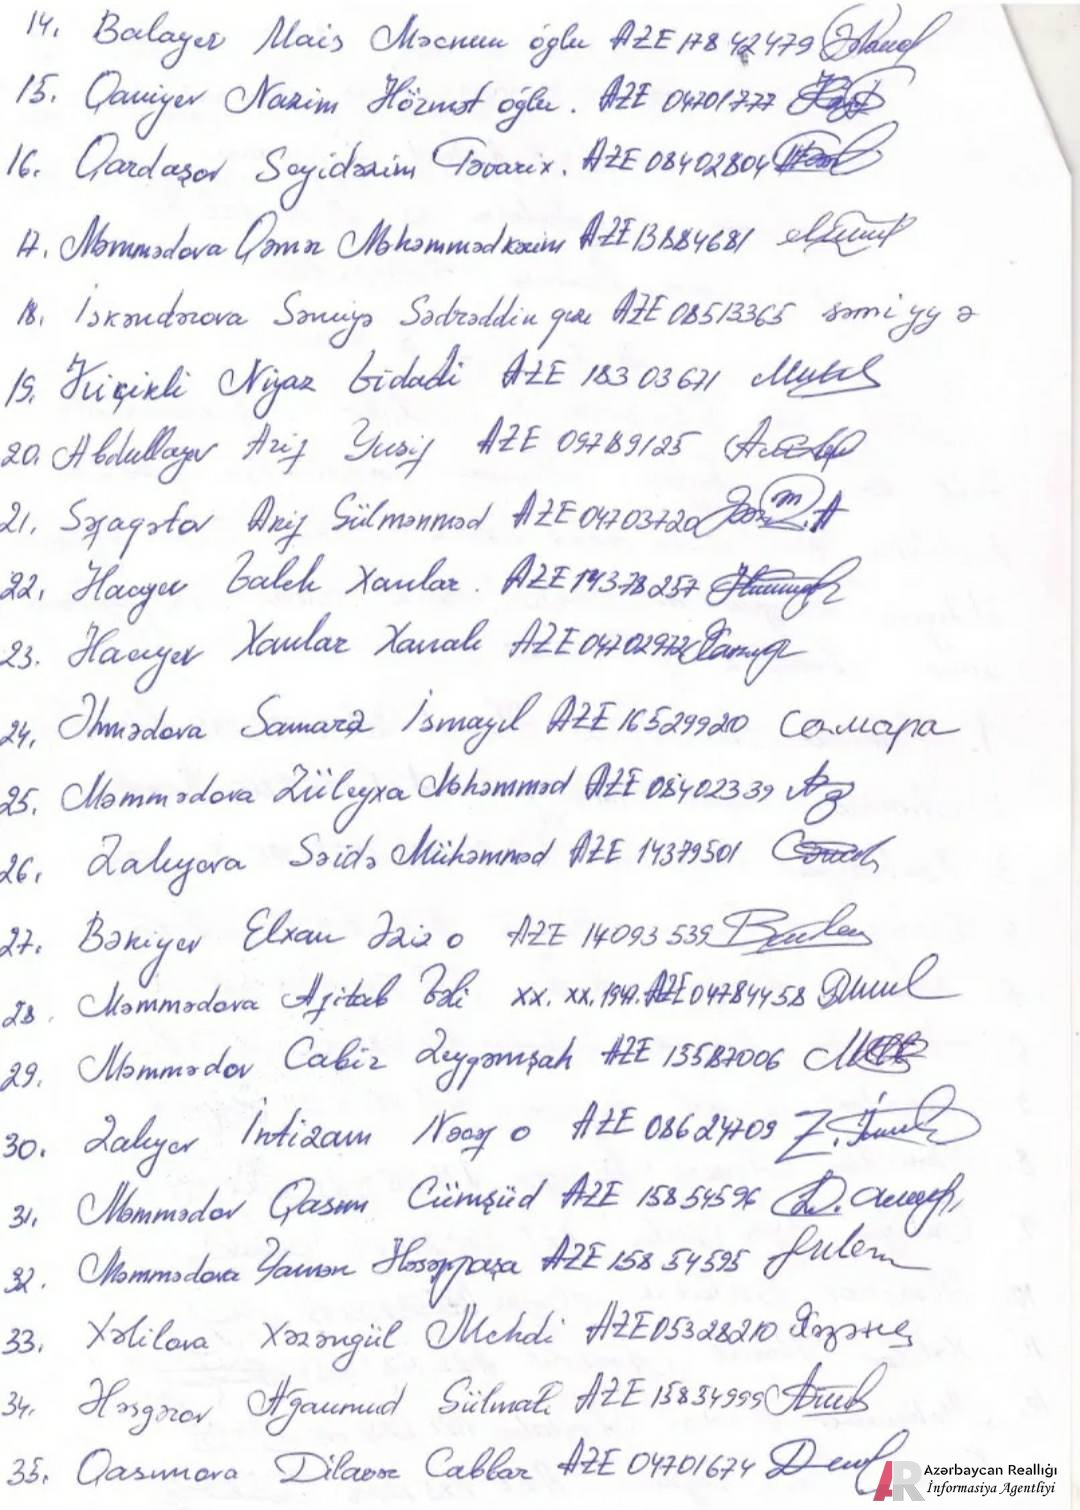 14. Balayev Mais Məcnun oğlu AZE 17842479
15. Qaniyev Nazim Hörmət oğlu. AZE 04701777
16. Qardaşov Seyidəzim Təvarix. AZE 08402804
17. Məmmədova Qəmər Məhəmmədkərim AZE 13884681
18. İskəndərova Səmiyə Sədrəddin qızı AZE 08513365 səmiyyə
19. Kiçikli Niyaz Vidadi AZE 18303671
20. Abdullayev Arif Yusif AZE 09789125
21. Şəfaqətov Arif Gülməmməd AZE 04703720
22. Hacıyev Xanlar. AZE 14378257
23. Hacıyev Xanlar Xanalı AZE 04702972
24. Əhmədova Samarə İsmayıl AZE 16529920 Самара
25. Məmmədova Züleyxa Məhəmməd AZE 08402339
26. Zalıyeva Səidə Mühəmməd AZE 14379501
27. Bəkiyev Elxan Əziz o AZE 14093539
28. Məmmədova Afitab Vəli xx.xx.1947. AZE 04784458
29. Məmmədov Cabir Zeyqəmşah AZE 15587006
30. Zalıyev İntizam Nəcəf o AZE 08624709
31. Məmmədov Qasım Cümşüd AZE 15854596
32. Məmmədova Yamən Həsənpaşa AZE 15854595
33. Xəlilova Xəzəngül Mehdi AZE 05328210
34. Həsgərov Ağamurad Gülmalı AZE 15834999
35. Qasımova Dilavər Cabbar AZE 04701674
AR Azərbaycan Reallığı
İnformasiya Agentliyi